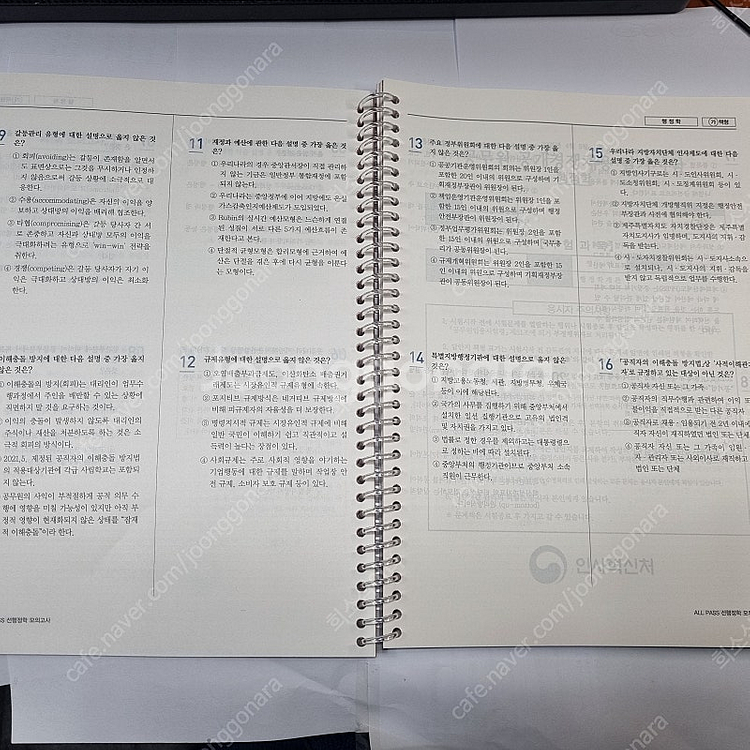 행정학
㉮ 책형
9 갈등관리 유형에 대한 설명으로 옳지 않은 것
은?
① 회피(avoiding)는 갈등이 존재함을 알면서
도 표면상으로는 그것을 무시하거나 인정하
지 않음으로써 갈등 상황에 소극적으로 대
응한다.
② 수용(accommodating)은 자신의 이익을 양
보하고 상대방의 이익을 배려해 협조한다.
③ 타협(compromising)은 갈등 당사자 간 서
로 존중하고 자신과 상대방 모두의 이익을
극대화하려는 유형으로 'win-win' 전략을
취한다.
④ 경쟁(competing)은 갈등 당사자가 자기 이
익은 극대화하고 상대방의 이익은 최소화
한다.
이해충돌 방지에 대한 다음 설명 중 가장 옳지
않은 것은?
① 이해충돌의 방지(회피)는 대리인이 업무수
행과정에서 주인을 배반할 수 있는 상황에
직면하지 말 것을 요구하는 것이다.
이익의 충돌이 발생하지 않도록 대리인의
주식이나 재산을 처분하도록 하는 것은 소
극적 회피의 방식이다.
2021.5. 제정된 공직자의 이해충돌 방지법
의 적용대상기관에 각급 사립학교는 포함되
지 않는다.
공무원의 사익이 부적절하게 공적 의무 수
행에 영향을 미칠 가능성이 있지만 아직 부
정적 영향이 현재화되지 않은 상태를 "잠재
적 이해충돌"이라 한다.
11 재정과 예산에 관한 다음 설명 중 가장 옳지 않은 것
은?
① 우리나라의 경우 중앙관서장이 직접 관리하
지 않는 기금은 일반정부 통합재정에 포함
되지 않는다.
② 우리나라는 중앙정부에 이어 지방에도 온실
가스감축인지예산제도가 도입되었다.
③ Rubin의 실시간 예산모형은 느슨하게 연결
된 성질이 서로 다른 5가지 예산흐름이 존
재한다고 본다.
④ 단절적 균형모형은 합리모형에 근거하여 예
산은 단절을 겪은 후에 다시 균형을 이룬다
는 모형이다.
12 규제유형에 대한 설명으로 옳지 않은 것은?
① 오염배출부과금제도, 이산화탄소 배출권거
래제도는 시장유인적 규제유형에 속한다.
② 포지티브 규제방식은 네거티브 규제방식에
비해 피규제자의 자율성을 더 보장한다.
③ 명령지시적 규제는 시장유인적 규제에 비해
일반 국민이 이해하기 쉽고 직관적이고 설
득력이 높다는 장점이 있다.
④ 사회규제는 주로 사회적 영향을 야기하는
기업행동에 대한 규제를 말하며 작업장 안
전 규제, 소비자 보호 규제 등이 있다.
13 주요 정부위원회에 대한 다음 설명 중 가장 옳
지 않은 것은?
① 공공기관운영위원회의 회의는 위원장 1인을
포함한 20인 이내의 위원으로 구성하며 기
획재정부장관이 위원장이 된다.
② 책임운영기관운영위원회는 위원장 1인을 포
함한 15인 이내의 위원으로 구성하며 행정
안전부장관이 위원장이 된다.
③ 정부업무평가위원회는 위원장 2인을 포함
한 15인 이내의 위원으로 구성하며 국무총
리가 공동위원장이 된다.
④ 규제개혁위원회는 위원장 2인을 포함한 15
인 이내의 위원으로 구성하며 기획재정부장
관이 공동위원장이 된다.
14 특별지방행정기관에 대한 설명으로 옳지 않은
것은?
① 지방고용노동청, 세관, 지방병무청, 우체국
등이 이에 해당된다.
② 국가의 사무를 집행하기 위해 중앙부처에서
설치한 일선 집행기관으로 고유의 법인격
및 자치권을 가지고 있다.
③ 법률로 정한 경우를 제외하고는 대통령령으
로 정하는 바에 따라 설치된다.
④ 중앙부처의 행정기관이므로 중앙부처 소속
직원이 근무한다.
15 우리나라 지방자치단체 인사제도에 대한 다음
설명 중 가장 옳은 것은?
① 지방인사기구로는 시·도인사위원회, 시·
도소청위원회, 시·도징계위원회 등이 있
다.
② 지방자치단체 개방형직위 지정은 행정안전
부장관과 사전에 협의해야 한다.
③ 제주특별자치도 자치경찰단장은 제주특별
자치도지사가 임명하며, 도지사의 지휘·감
독을 받는다.
④ 시·도자치경찰위원회는 시·도지사소속으
로 설치되나, 시·도지사의 지휘·감독을
받지 않고 독립적으로 업무를 수행한다.
16 「공직자의 이해충돌 방지법」상 '사적이해관계
자'로 규정하고 있는 대상이 아닌 것은?
① 공직자 자신 또는 그 가족
② 공직자의 직무수행과 관련하여 이익 또는
불이익을 직접적으로 받는 다른 공직자
③ 공직자로 채용·임용되기 전 2년 이내에
직자 자신이 재직하였던 법인 또는 단체
④ 공직자 자신 또는 그 가족이 임원·
자·관리자 또는 사외이사로 재직하고
법인 또는 단체
인사혁신처
SS 선행정학 모의고사
ALL PASS 선행정학 모
joonggonara
cafe.naver.com/joonggonara